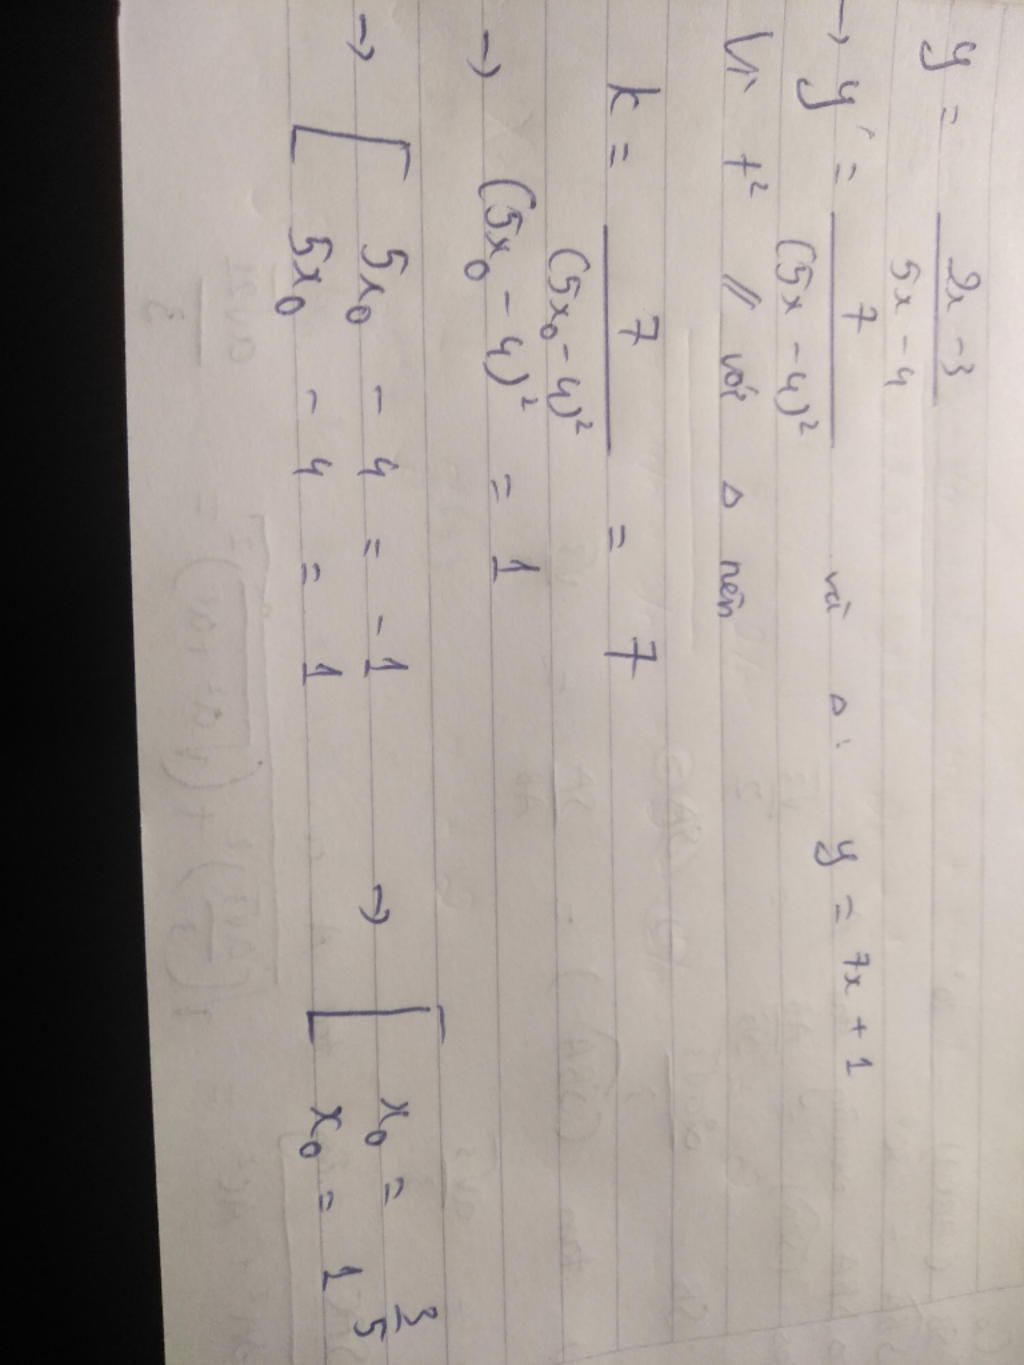 y = (2x - 3)/(5x - 4)
→ y' = 7/(5x - 4)² và Δ: y = 7x + 1
Vì t² // với Δ nên
k = 7/(5x₀ - 4)² = 7
→ (5x₀ - 4)² = 1
→ [ 5x₀ - 4 = -1 → [ x₀ = 3/5
5x₀ - 4 = 1 x₀ = 1